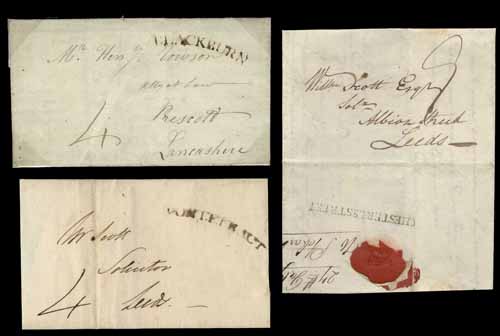 BLACKBURN
Mr. Henry
Atty at Law
Prescott
Lancashire
4
Willm Scott Esqr
Solr
Albion Street
Leeds
CHESTER LE STREET
PONTEFRACT
Scott
Solicitor
4
Leeds